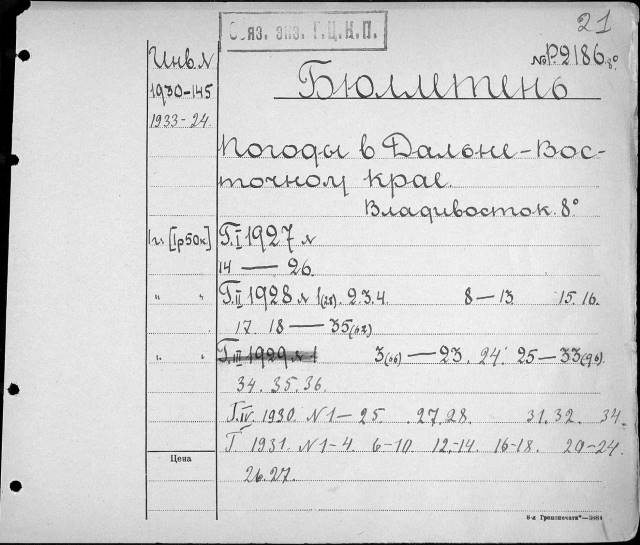 21
Обяз. экз. Г.Ц.К.П.
№ Р.2186 8°
Инв. №
Бюллетень
1930-145
1933-24
Погоды в Дальне-Вос-
точном крае.
Владивосток. 8°
1 г. [1р50к] Г. I 1927 №
14 — 26.
" " Г. II 1928 № 1(28). 2.3.4. 8—13 15.16.
17. 18 — 35(62)
" " Г. III 1929 № 1 3(66) — 23. 24. 25—33(96).
34. 35. 36.
Г. IV. 1930. №1—25. .27.28. 31.32. 34.
Г 1931. №1-4. 6-10. 12-14. 16-18. 20-24.
Цена
26.27.